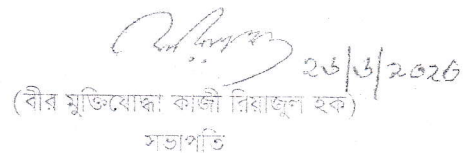 ২৬/৬/২০২০
(বীর মুক্তিযোদ্ধা কাজী রিয়াজুল হক)
সভাপতি